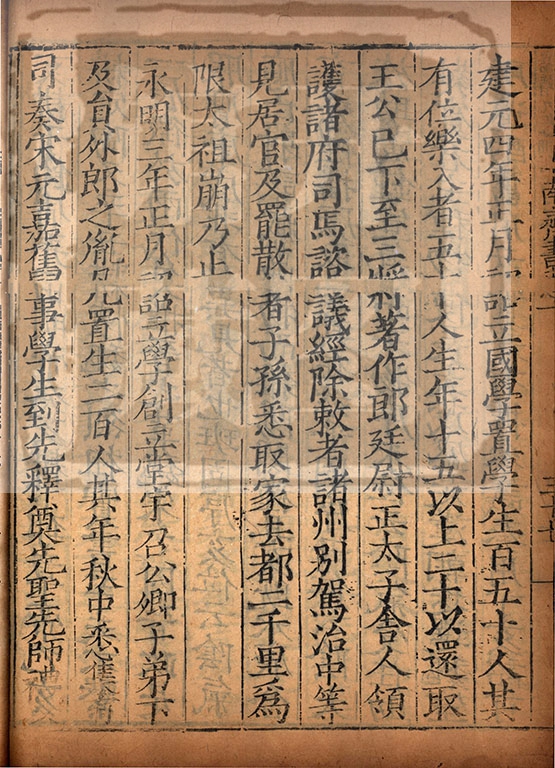 建元四年正月詔立國學置學生百五十人其
有位樂入者五十人生年十五以上二十以還取
王公已下至三將著作郎廷尉正太子舍人領
護諸府司馬諮議經除敕者諸州別駕治中等
見居官及罷散者子孫悉取家去都二千里爲
限太祖崩乃止
永明三年正月詔立學創立堂宇召公卿子弟下
及員外郎之胤凡置生二百人其年秋中悉集有
司奏宋元嘉舊事學生到先釋奠先聖先師禮又